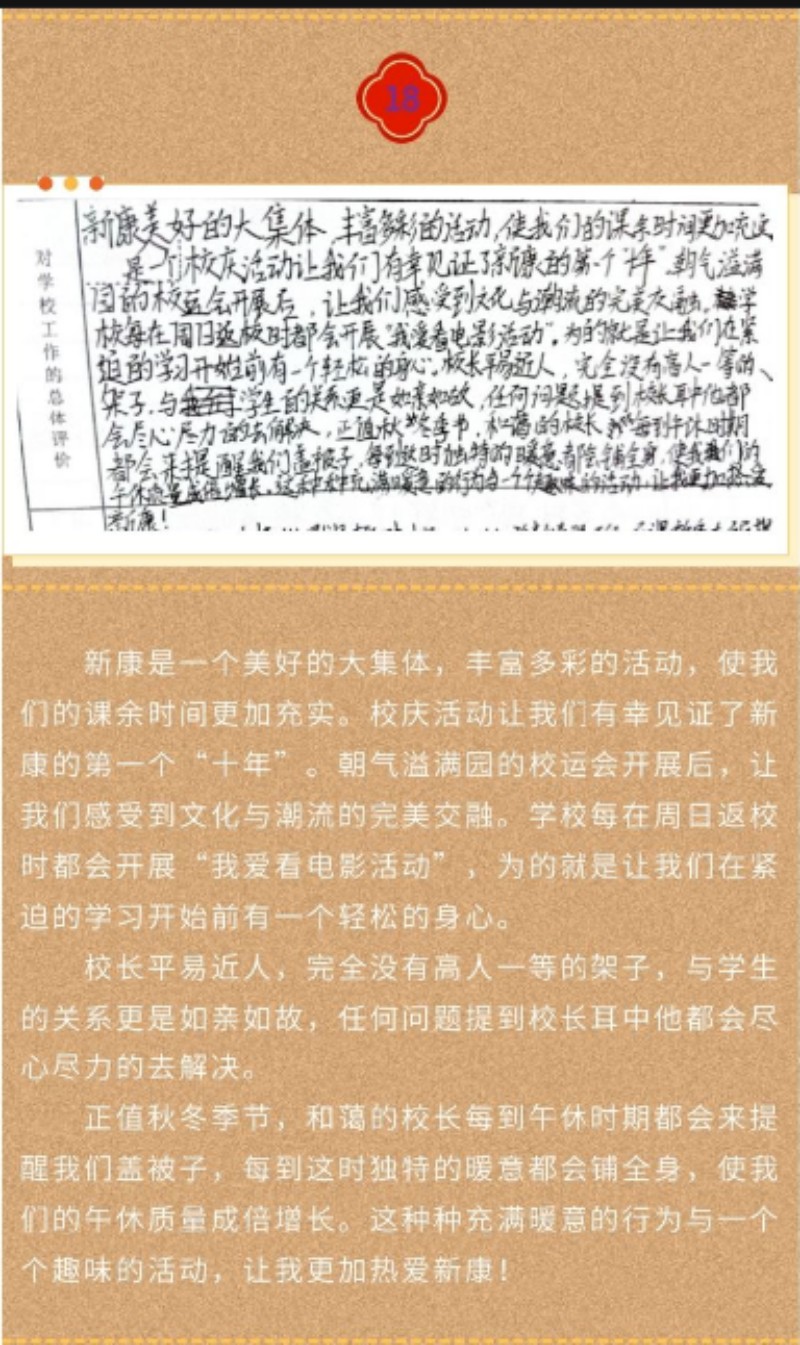 18
对学校工作的总体评价
新康美好的大集体，丰富多彩的活动，使我们的课余时间更加充实
是一个校庆活动让我们有幸见证了新康的第一个“十年”。朝气溢满
园的校运会开展后，让我们感受到文化与潮流的完美交融。学
校每在周日返校时都会开展“我爱看电影活动”。为的就是让我们在紧
迫的学习开始前有一个轻松的身心。校长平易近人，完全没有高人一等的
架子，与学生的关系更是如亲如故，任何问题提到校长耳中他都
会尽心尽力的去解决，正值秋冬季节，和蔼的校长每到午休时期
都会来提醒我们盖被子，每到这时独特的暖意都会铺全身，使我们的
午休质量成倍增长。这种种充满暖意的行为与一个个趣味的活动，让我更加热爱
新康！
新康是一个美好的大集体，丰富多彩的活动，使我
们的课余时间更加充实。校庆活动让我们有幸见证了新
康的第一个“十年”。朝气溢满园的校运会开展后，让
我们感受到文化与潮流的完美交融。学校每在周日返校
时都会开展“我爱看电影活动”，为的就是让我们在紧
迫的学习开始前有一个轻松的身心。
校长平易近人，完全没有高人一等的架子，与学生
的关系更是如亲如故，任何问题提到校长耳中他都会尽
心尽力的去解决。
正值秋冬季节，和蔼的校长每到午休时期都会来提
醒我们盖被子，每到这时独特的暖意都会铺全身，使我
们的午休质量成倍增长。这种种充满暖意的行为与一个
个趣味的活动，让我更加热爱新康！